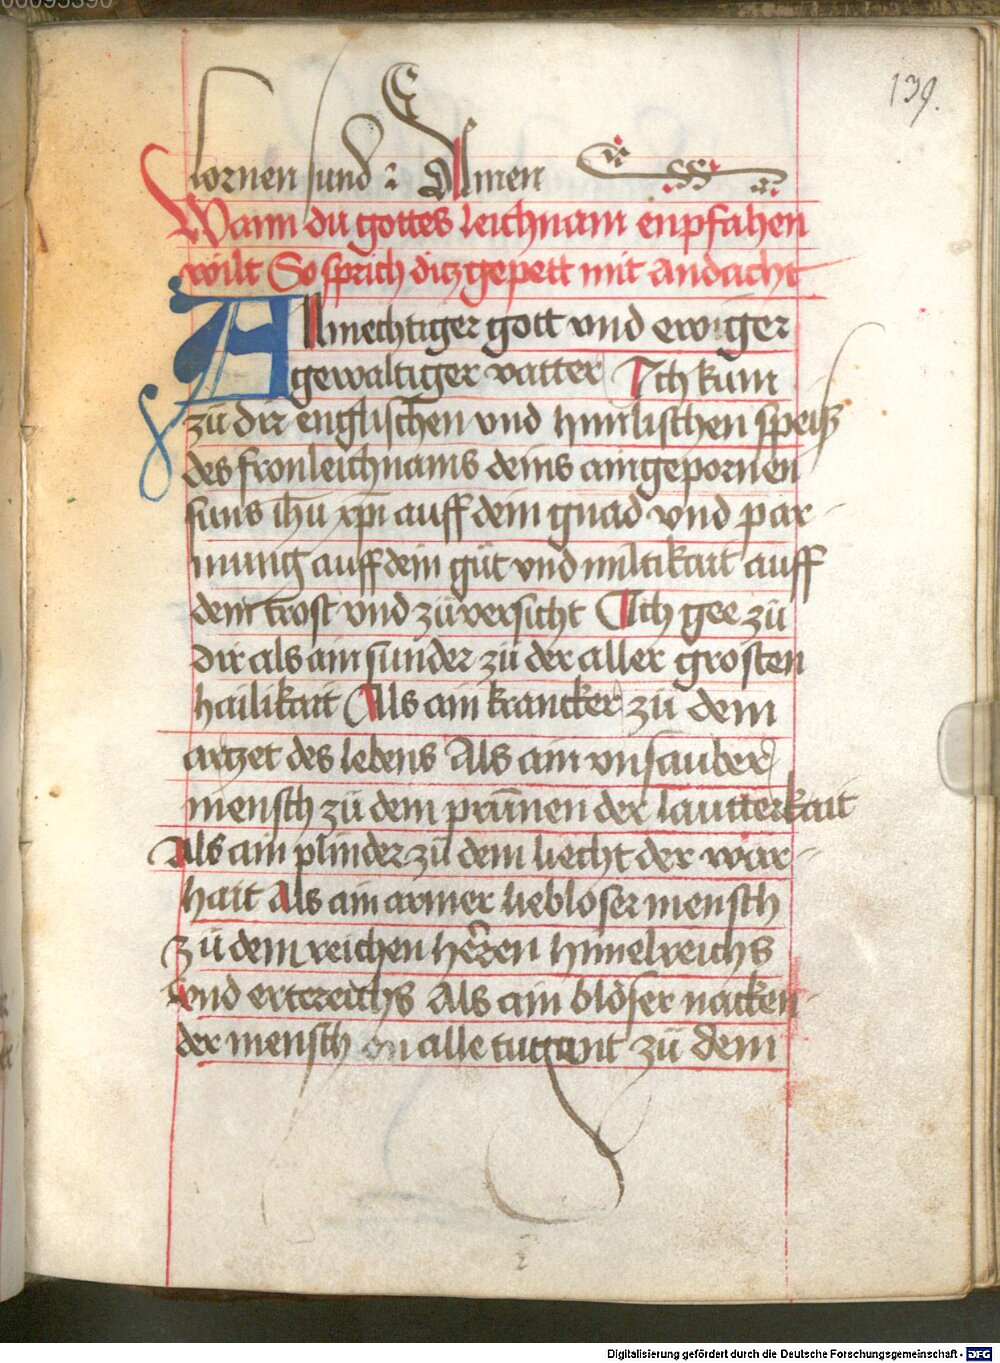 139.
lornen sund : Amen
Wann du gottes leichnam enpfahen
wilt So sprich ditz gepett mit andacht
Allmechtiger gott vnd ewiger
gewaltiger vatter Ich kum
zů dir englischen vnd himlischen speisz
des fronleichnams deins aingepornen
suns ihu xpi auff dein gnad vnd par-
mung auff dein güt vnd miltikait auff
dein trost vnd zůversicht Ich gee zů
dir als ain sünder zů der aller grosten
hailikait Als ain krancker zů dem
artzet des lebens Als ain vnsauber
mensch zů dem prunnen der lautterkait
Als ain plinder zů dem liecht der war-
hait Als ain armer liebloser mensch
zů dem reichen herren himelreichs
vnd ertereichs Als ain blöser nacken-
der mensch on alle tugant zů dem
Digitalisierung gefördert durch die Deutsche Forschungsgemeinschaft - DFG